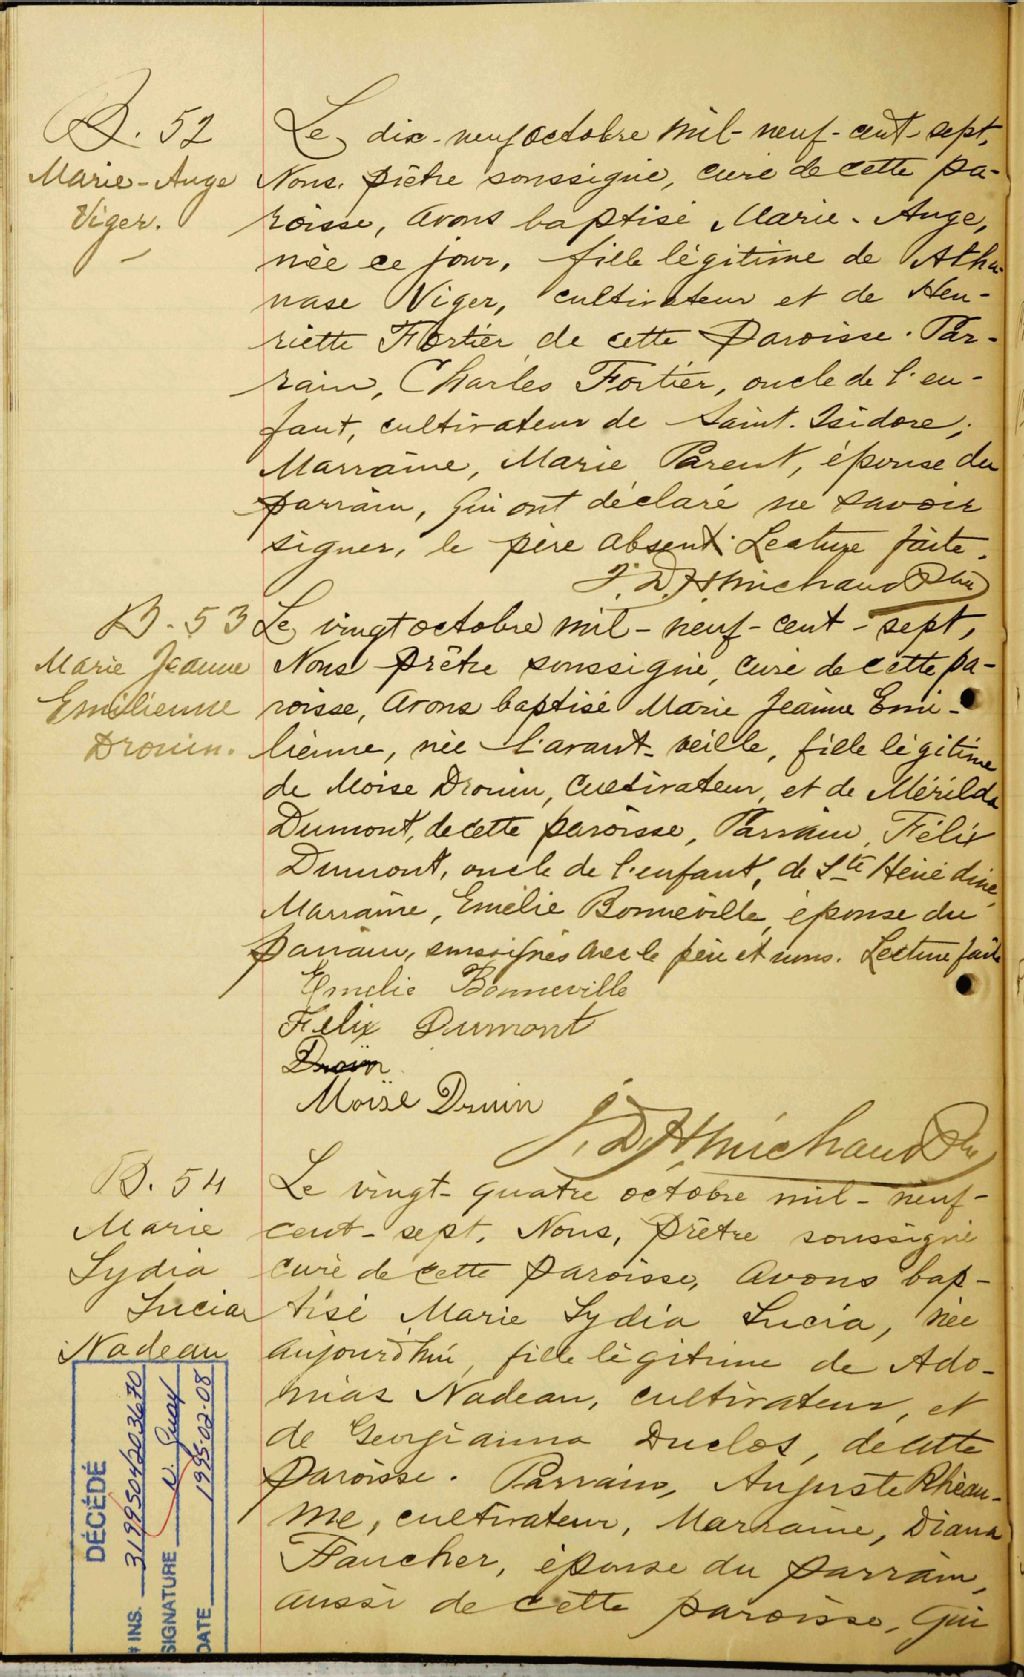 B. 52
Marie-Ange
Viger.
Le dix-neuf octobre mil-neuf-cent-sept,
Nous, prêtre soussigné, curé de cette pa-
roisse, avons baptisé Marie-Ange,
née ce jour, fille légitime de Atha-
nase Viger, cultivateur et de Hen-
riette Fortier de cette paroisse. Par-
rain, Charles Fortier, oncle de l'en-
fant, cultivateur de Saint-Isidore;
Marraine, Marie Parent, épouse du
parrain, qui ont déclaré ne savoir
signer, le père absent. Lecture faite.
J. D. H. Michaud Ptre
B. 53
Marie Jeanne
Emilienne
Drouin.
Le vingt octobre mil-neuf-cent-sept,
Nous prêtre soussigné, curé de cette pa-
roisse, avons baptisé Marie Jeanne Emi-
lienne, née l'avant-veille, fille légitime
de Moise Drouin, cultivateur, et de Mérilda
Dumont, de cette paroisse, Parrain, Félix
Dumont, oncle de l'enfant, de Ste Hénédine,
Marraine, Emélie Bonneville, épouse du
parrain, soussignés avec le père et nous. Lecture faite
Emelie Bonneville
Felix Dumont
Droin
Moïse Druin
J. D. H. Michaud Ptre
B. 54
Marie
Lydia
Lucia
Nadeau
Le vingt-quatre octobre mil-neuf-
cent-sept, Nous, prêtre soussigné
curé de cette paroisse, avons bap-
tisé Marie Lydia Lucia, née
aujourd'hui, fille légitime de Ado-
nias Nadeau, cultivateur, et
de Georgianna Duclos, de cette
paroisse. Parrain, Auguste Rhéau-
me, cultivateur, Marraine, Diana
Faucher, épouse du parrain,
aussi de cette paroisse, qui
DÉCÉDÉ
# INS. 3199504203670
SIGNATURE N. Guay
DATE 1995-02-08